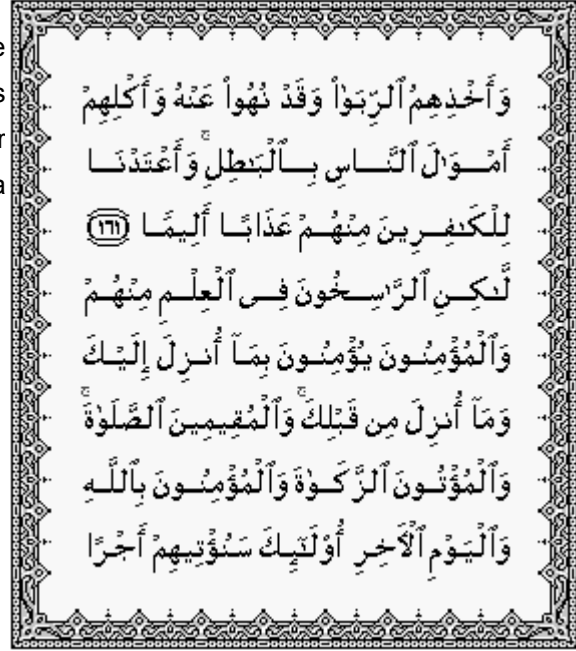 وَأَخْذِهِمُ ٱلرِّبَوٰا۟ وَقَدْ نُهُوا۟ عَنْهُ وَأَكْلِهِمْ
أَمْوَٰلَ ٱلنَّاسِ بِٱلْبَٰطِلِ ۚ وَأَعْتَدْنَا
لِلْكَٰفِرِينَ مِنْهُمْ عَذَابًا أَلِيمًا ١٦١
لَّٰكِنِ ٱلرَّٰسِخُونَ فِى ٱلْعِلْمِ مِنْهُمْ
وَٱلْمُؤْمِنُونَ يُؤْمِنُونَ بِمَآ أُنزِلَ إِلَيْكَ
وَمَآ أُنزِلَ مِن قَبْلِكَ ۚ وَٱلْمُقِيمِينَ ٱلصَّلَوٰةَ ۚ
وَٱلْمُؤْتُونَ ٱلزَّكَوٰةَ وَٱلْمُؤْمِنُونَ بِٱللَّهِ
وَٱلْيَوْمِ ٱلْءَاخِرِ أُو۟لَٰٓئِكَ سَنُؤْتِيهِمْ أَجْرًا